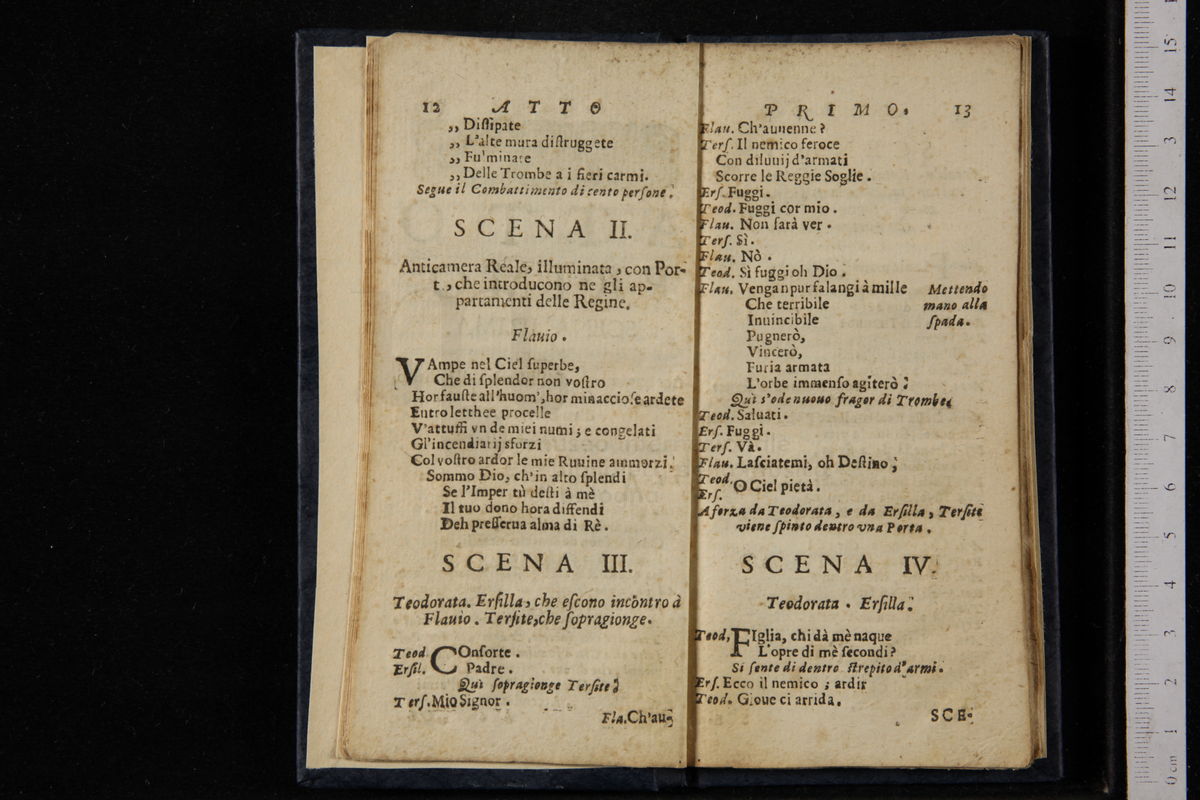 12 ATTO
„ Diſſipate
„ L'alte mura diſtruggete
„ Fu'minate
„ Delle Trombe a i fieri carmi.
Segue il Combattimento di cento perſone.
SCENA II.
Anticamera Reale, illuminata, con Por-
t., che introducono ne gli ap-
partamenti delle Regine.
Flauio.
VAmpe nel Ciel ſuperbe,
Che di ſplendor non voſtro
Hor fauſte all'huom', hor minaccioſe ardete
Entro letthee procelle
V'attuffi vn de miei numi; e congelati
Gl'incendiarij sforzi
Col voſtro ardor le mie Ruuine ammorzi.
Sommo Dio, ch'in alto ſplendi
Se l'Imper tù deſti à mè
Il tuo dono hora diffendi
Deh preſſerua alma di Rè.
SCENA III.
Teodorata. Erſilla, che eſcono incontro à
Flauio. Terſite, che ſopragionge.
Teod. COnſorte.
Erſil. Padre.
Quì ſopragionge Terſite.
Terſ. Mio Signor.
Fla. Ch'au-
PRIMO. 13
Flau. Ch'auuenne?
Terſ. Il nemico feroce
Con diluuij d'armati
Scorre le Reggie Soglie.
Erſ. Fuggi.
Teod. Fuggi cor mio.
Flau. Non ſarà ver.
Terſ. Sì.
Flau. Nò.
Teod. Sì fuggi oh Dio.
Flau. Vengan pur falangi à mille Mettendo
Che terribile mano alla
Inuincibile ſpada.
Pugnerò,
Vincerò,
Furia armata
L'orbe immenſo agiterò.
Quì s'ode nuouo fragor di Trombe.
Teod. Saluati.
Erſ. Fuggi.
Terſ. Và.
Flau. Laſciatemi, oh Deſtino;
Teod.
Erſ. O Ciel pietà.
A forza da Teodorata, e da Erſilla, Terſite
viene ſpinto dentro vna Porta.
SCENA IV.
Teodorata. Erſilla.
Teod. FIglia, chi dà mè naque
L'opre di mè ſecondi?
Si ſente di dentro ſtrepito d'armi.
Erſ. Ecco il nemico; ardir
Teod. Gioue ci arrida.
SCE-